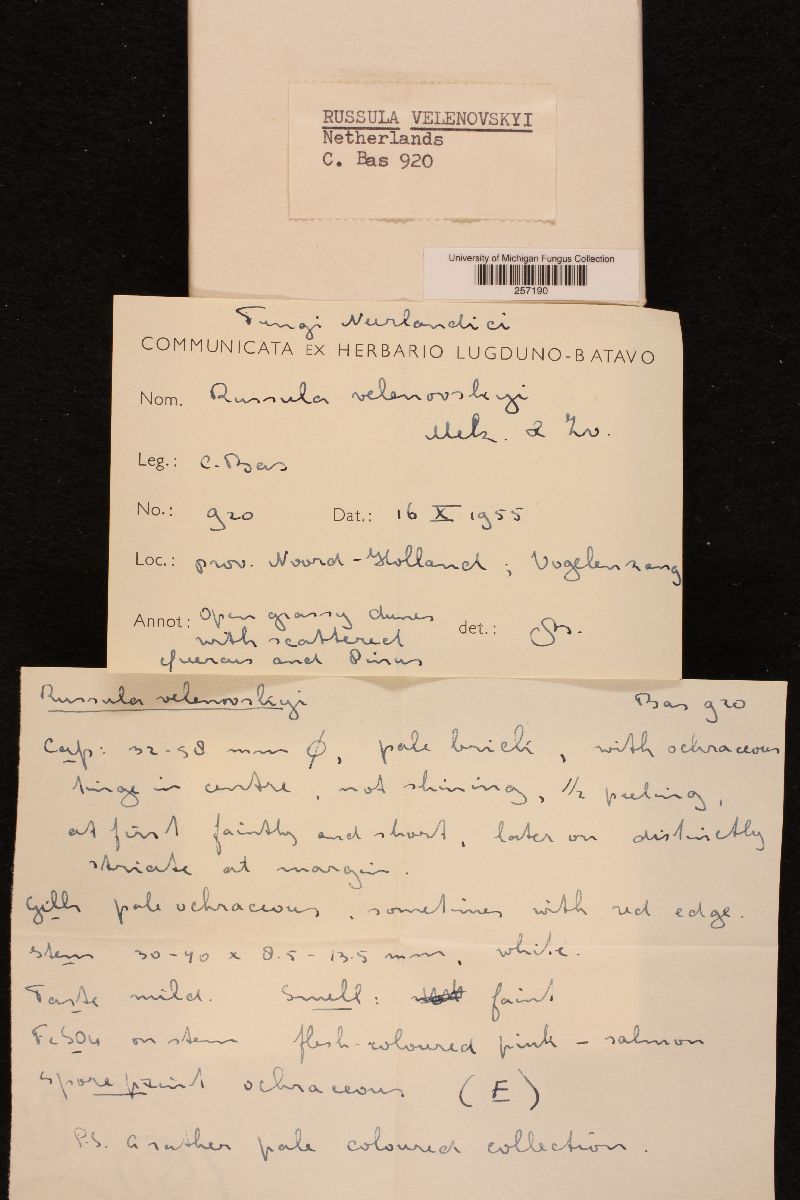 RUSSULA VELENOVSKYI
Netherlands
C. Bas 920
University of Michigan Fungus Collection
257190
Fungi Neerlandici
COMMUNICATA EX HERBARIO LUGDUNO-BATAVO
Nom. Russula velenovskyi
Melz. & Zv.
Leg.: C. Bas
No.: 920 Dat.: 16 X 1955
Loc.: prov. Noord-Holland ; Vogelenzang
Annot: Open grassy dunes
with scattered
Quercus and Pinus
det.:
Russula velenovskyi Bas 920
Cap: 32-58 mm Ø, pale brick, with ochraceous
tinge in centre, not shining, 1/2 peeling,
at first faintly and short, later on distinctly
striate at margin.
Gills pale ochraceous, sometimes with red edge.
Stem 30-40 x 8.5-13.5 mm, white.
Taste mild. Smell: faint
FeSO4 on stem flesh-coloured pink - salmon
Spore print ochraceous (F)
P.S. a rather pale coloured collection.